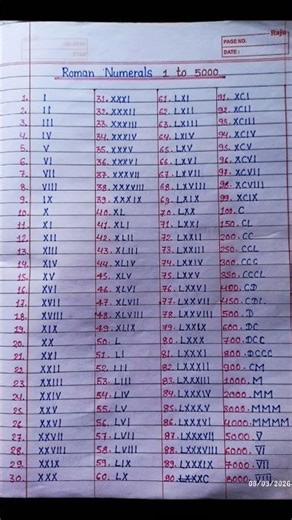 Raju
PAGE NO.:
DATE:
Roman Numerals 1 to 5000
1. I
2. II
3. III
4. IV
5. V
6. VI
7. VII
8. VIII
9. IX
10. X
11. XI
12. XII
13. XIII
14. XIV
15. XV
16. XVI
17. XVII
18. XVIII
19. XIX
20. XX
21. XXI
22. XXII
23. XXIII
24. XXIV
25. XXV
26. XXVI
27. XXVII
28. XXVIII
29. XXIX
30. XXX
31. XXXI
32. XXXII
33. XXXIII
34. XXXIV
35. XXXV
36. XXXVI
37. XXXVII
38. XXXVIII
39. XXXIX
40. XL
41. XLI
42. XLII
43. XLIII
44. XLIV
45. XLV
46. XLVI
47. XLVII
48. XLVIII
49. XLIX
50. L
51. LI
52. LII
53. LIII
54. LIV
55. LV
56. LVI
57. LVII
58. LVIII
59. LIX
60. LX
61. LXI
62. LXII
63. LXIII
64. LXIV
65. LXV
66. LXVI
67. LXVII
68. LXVIII
69. LXIX
70. LXX
71. LXXI
72. LXXII
73. LXXIII
74. LXXIV
75. LXXV
76. LXXVI
77. LXXVII
78. LXXVIII
79. LXXIX
80. LXXX
81. LXXXI
82. LXXXII
83. LXXXIII
84. LXXXIV
85. LXXXV
86. LXXXVI
87. LXXXVII
88. LXXXVIII
89. LXXXIX
90. LXXXC
91. XCI
92. XCII
93. XCIII
94. XCIV
95. XCV
96. XCVI
97. XCVII
98. XCVIII
99. XCIX
100. C
150. CL
200. CC
250. CCL
300. CCC
350. CCCL
400. CD
450. CDL
500. D
600. DC
700. DCC
800. DCCC
900. CM
1000. M
2000. MM
3000. MMM
4000. MMMM
5000. V̅
6000. V̅I̅
7000. V̅I̅I̅
8000. V̅I̅I̅I̅